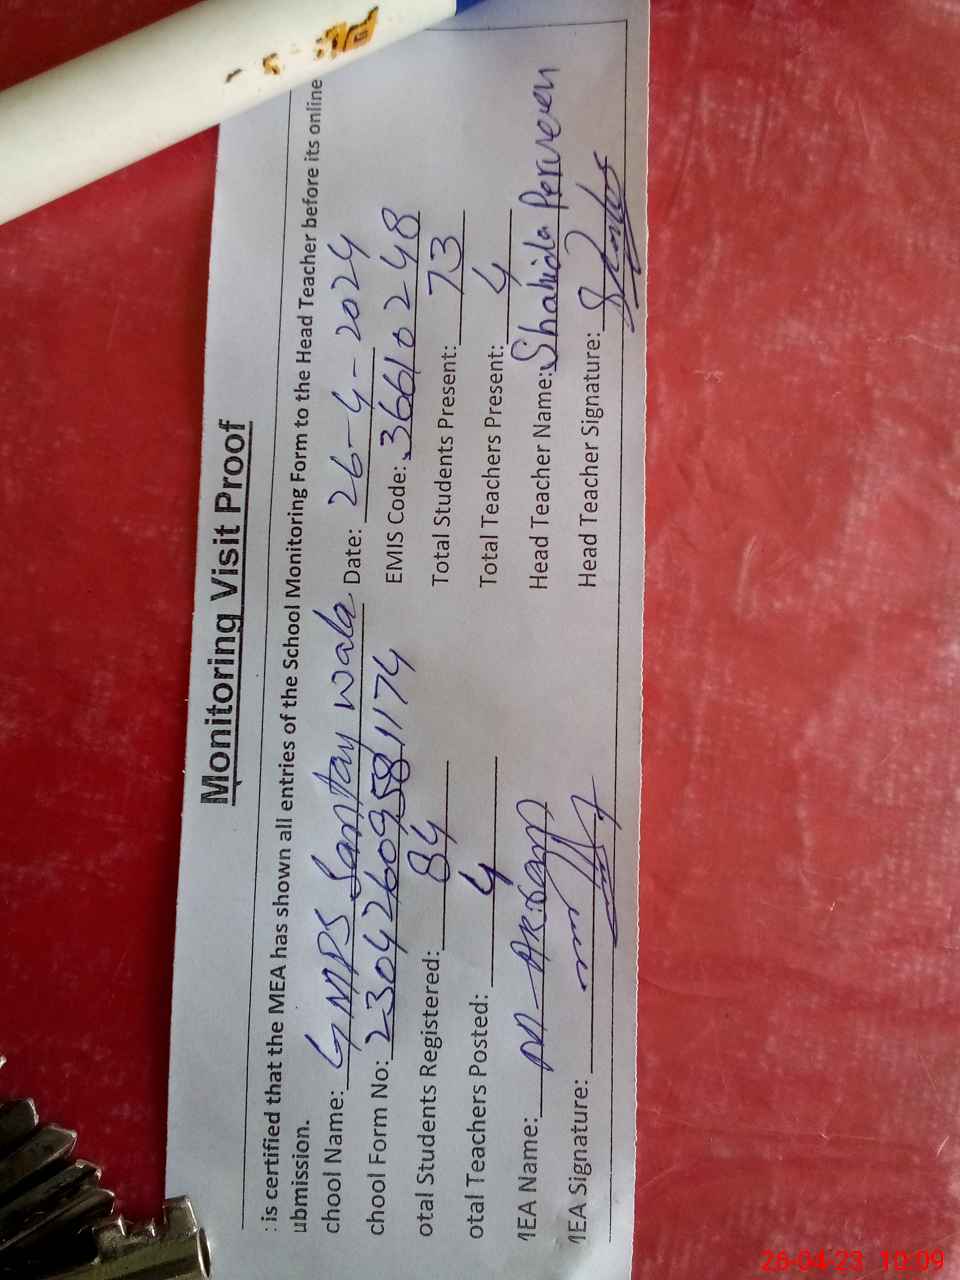 Monitoring Visit Proof
: is certified that the MEA has shown all entries of the School Monitoring Form to the Head Teacher before its online
ubmission.
chool Name: GMPS Santay wala Date: 26-4-2024
chool Form No: 23042609581174 EMIS Code: 36610248
otal Students Registered: 84 Total Students Present: 73
otal Teachers Posted: 4 Total Teachers Present: 4
MEA Name: Head Teacher Name: Shahida Perveen
MEA Signature: Head Teacher Signature:
26-04-23 10:09